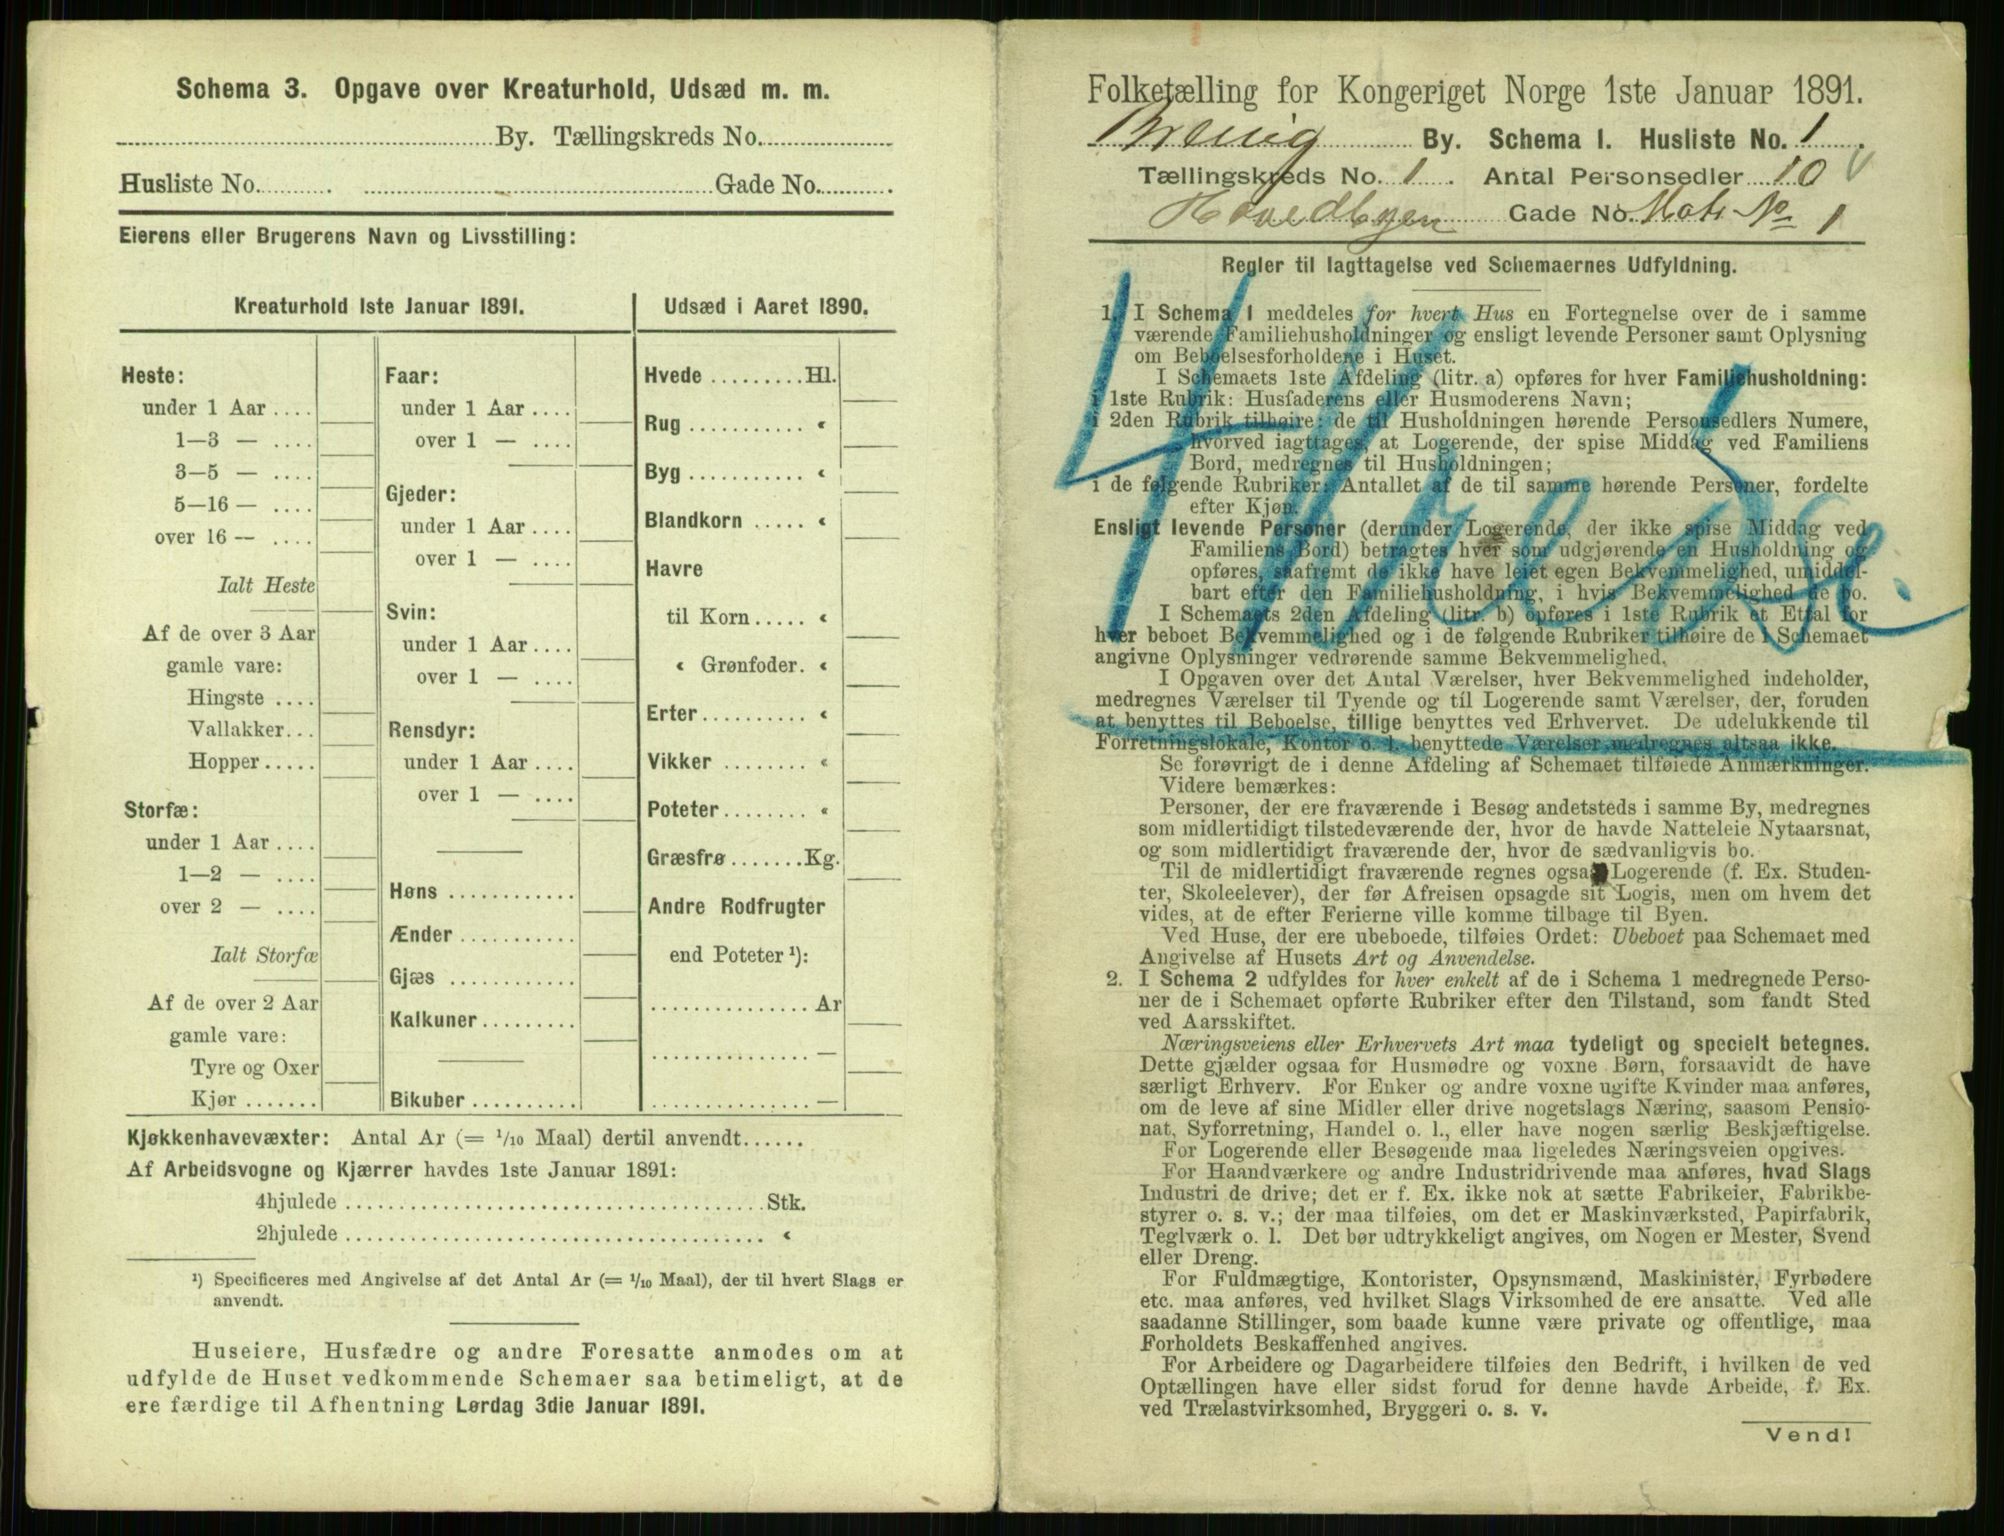 Schema 3. Opgave over Kreaturhold, Udsæd m. m.
By. Tællingskreds No.
Husliste No. Gade No.
Eierens eller Brugerens Navn og Livsstilling:
Kreaturhold 1ste Januar 1891.
Heste:
under 1 Aar ....
1—3 — ....
3—5 — ....
5—16 — ....
over 16 — ....
Ialt Heste
Af de over 3 Aar
gamle vare:
Hingste ....
Vallakker...
Hopper.....
Storfæ:
under 1 Aar ....
1—2 — ....
over 2 — ....
Ialt Storfæ
Af de over 2 Aar
gamle vare:
Tyre og Oxer
Kjør .......
Faar:
under 1 Aar ....
over 1 — ....
Gjeder:
under 1 Aar ....
over 1 — ....
Svin:
under 1 Aar ....
over 1 — ....
Rensdyr:
under 1 Aar ....
over 1 — ....
Høns ............
Ænder ...........
Gjæs ............
Kalkuner.........
Bikuber ..........
Udsæd i Aaret 1890.
Hvede .........Hl.
Rug ........... «
Byg ........... «
Blandkorn ..... «
Havre
til Korn ..... «
« Grønfoder. «
Erter.......... «
Vikker ........ «
Poteter ........ «
Græsfrø .......Kg.
Andre Rodfrugter
end Poteter ¹):
............... Ar
............... —
............... —
Kjøkkenhavevæxter: Antal Ar (= 1/10 Maal) dertil anvendt......
Af Arbeidsvogne og Kjærrer havdes 1ste Januar 1891:
4hjulede ...................................... Stk.
2hjulede ...................................... «
¹) Specificeres med Angivelse af det Antal Ar (= 1/10 Maal), der til hvert Slags er
anvendt.
Huseiere, Husfædre og andre Foresatte anmodes om at
udfylde de Huset vedkommende Schemaer saa betimeligt, at de
ere færdige til Afhentning Lørdag 3die Januar 1891.
Folketælling for Kongeriget Norge 1ste Januar 1891.
Brevig By. Schema I. Husliste No. 1
Tællingskreds No. 1. Antal Personsedler 10
Hovedbyen Gade No. Matr No 1
Regler til Iagttagelse ved Schemaernes Udfyldning.
1. I Schema 1 meddeles for hvert Hus en Fortegnelse over de i samme
værende Familiehusholdninger og ensligt levende Personer samt Oplysning
om Beboelsesforholdene i Huset.
I Schemaets 1ste Afdeling (litr. a) opføres for hver Familiehusholdning:
i 1ste Rubrik: Husfaderens eller Husmoderens Navn;
i 2den Rubrik tilhøire: de til Husholdningen hørende Personsedlers Numere,
hvorved iagttages, at Logerende, der spise Middag ved Familiens
Bord, medregnes til Husholdningen;
i de følgende Rubriker: Antallet af de til samme hørende Personer, fordelte
efter Kjøn.
Ensligt levende Personer (derunder Logerende, der ikke spise Middag ved
Familiens Bord) betragtes hver som udgjørende en Husholdning og
opføres, saafremt de ikke have leiet egen Bekvemmelighed, umiddel-
bart efter den Familiehusholdning, i hvis Bekvemmelighed de bo.
I Schemaets 2den Afdeling (litr. b) opføres i 1ste Rubrik et Ettal for
hver beboet Bekvemmelighed og i de følgende Rubriker tilhøire de i Schemaet
angivne Oplysninger vedrørende samme Bekvemmelighed.
I Opgaven over det Antal Værelser, hver Bekvemmelighed indeholder,
medregnes Værelser til Tyende og til Logerende samt Værelser, der, foruden
at benyttes til Beboelse, tillige benyttes ved Erhvervet. De udelukkende til
Forretningslokale, Kontor o. l. benyttede Værelser medregnes altsaa ikke.
Se forøvrigt de i denne Afdeling af Schemaet tilføiede Anmærkninger.
Videre bemærkes:
Personer, der ere fraværende i Besøg andetsteds i samme By, medregnes
som midlertidigt tilstedeværende der, hvor de havde Natteleie Nytaarsnat,
og som midlertidigt fraværende der, hvor de sædvanligvis bo.
Til de midlertidigt fraværende regnes ogsaa Logerende (f. Ex. Studen-
ter, Skoleelever), der før Afreisen opsagde sit Logis, men om hvem det
vides, at de efter Ferierne ville komme tilbage til Byen.
Ved Huse, der ere ubeboede, tilføies Ordet: Ubeboet paa Schemaet med
Angivelse af Husets Art og Anvendelse.
2. I Schema 2 udfyldes for hver enkelt af de i Schema 1 medregnede Perso-
ner de i Schemaet opførte Rubriker efter den Tilstand, som fandt Sted
ved Aarsskiftet.
Næringsveiens eller Erhvervets Art maa tydeligt og specielt betegnes.
Dette gjælder ogsaa for Husmødre og voxne Børn, forsaavidt de have
særligt Erhverv. For Enker og andre voxne ugifte Kvinder maa anføres,
om de leve af sine Midler eller drive nogetslags Næring, saasom Pensio-
nat, Syforretning, Handel o. l., eller have nogen særlig Beskjæftigelse.
For Logerende eller Besøgende maa ligeledes Næringsveien opgives.
For Haandværkere og andre Industridrivende maa anføres, hvad Slags
Industri de drive; det er f. Ex. ikke nok at sætte Fabrikeier, Fabrikbe-
styrer o. s. v.; der maa tilføies, om det er Maskinværksted, Papirfabrik,
Teglværk o. l. Det bør udtrykkeligt angives, om Nogen er Mester, Svend
eller Dreng.
For Fuldmægtige, Kontorister, Opsynsmænd, Maskinister, Fyrbødere
etc. maa anføres, ved hvilket Slags Virksomhed de ere ansatte. Ved alle
saadanne Stillinger, som baade kunne være private og offentlige, maa
Forholdets Beskaffenhed angives.
For Arbeidere og Dagarbeidere tilføies den Bedrift, i hvilken de ved
Optællingen have eller sidst forud for denne havde Arbeide, f. Ex.
ved Trælastvirksomhed, Bryggeri o. s. v.
Vend!